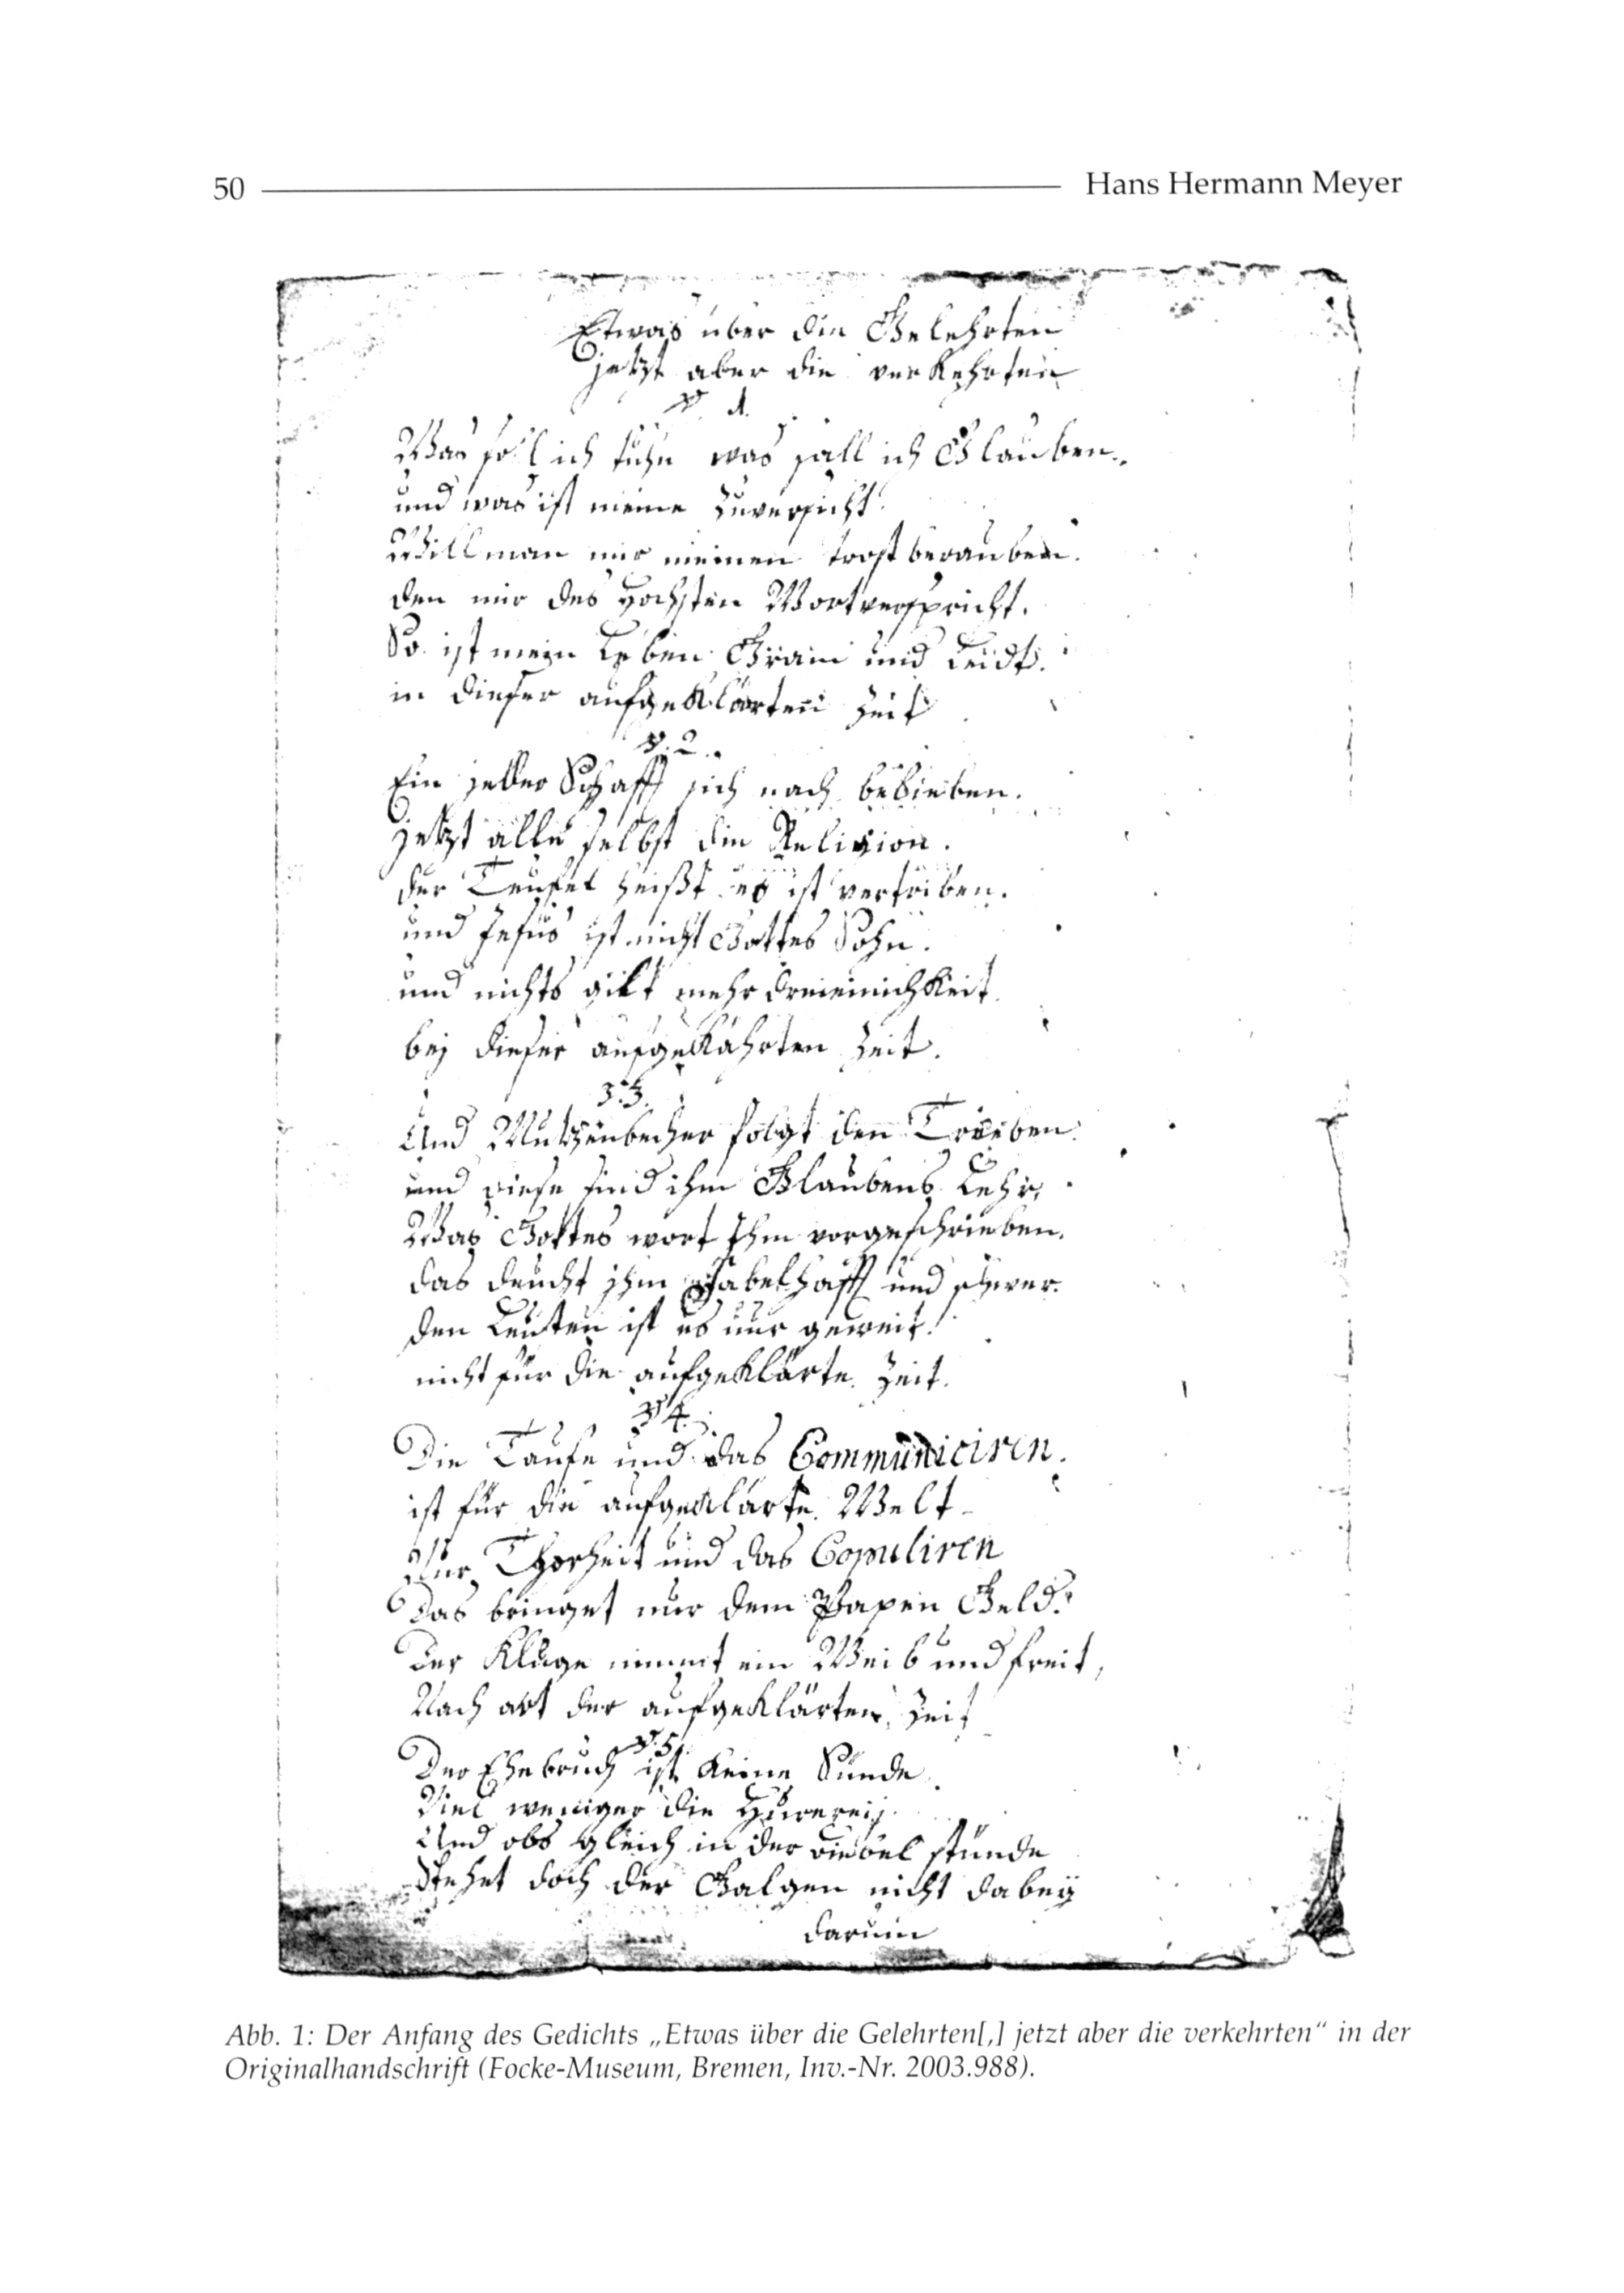 50 Hans Hermann Meyer
Etwas über die Gelehrten
jetzt aber die verkehrten
V. 1.
Was soll ich tuhn was sall ich Glauben.
und was ist meine zuversicht
Will man mir meinen trost berauben.
den mir des Hochsten Wort verspricht.
So ist mein Leben Gram und Leidt.
in dieser aufgeklärten zeit
V. 2.
Ein jeder Schafft sich nach belieben.
jetzt alle selbst die Religion.
der Teufel heißt es ist vertriben.
und Jesus ist nicht Gottes Sohn.
und nichts gilt mehr dreieinichkeit
bej dieser aufgeklährten zeit.
3.
Und Mutzenbecher folgt den Trieben
und diese sind ihm Glaubens Lehr,
Was Gottes wort Ihm vorgeschrieben.
das deucht ihm Fabelhafft und schwer.
den Leuten ist es nur geweit.
nicht für die aufgeklärte Zeit.
V 4.
Die Taufe und das Communiciren.
ist für die aufgeklärte Welt
Nur Thorheit und das Copuliren
Das bringet nur dem Papen Geld.
Der Kluge nimmt ein Weib und freit,
Nach art der aufgeklärten Zeit
V. 5.
Der Ehebruch ist keine Sünde
Viel weniger die Hurereij
Und obs gleich in der biebel stünde
Stehet doch der Galgen nicht dabeÿ
darum
Abb. 1: Der Anfang des Gedichts „Etwas über die Gelehrten[,] jetzt aber die verkehrten“ in der
Originalhandschrift (Focke-Museum, Bremen, Inv.-Nr. 2003.988).